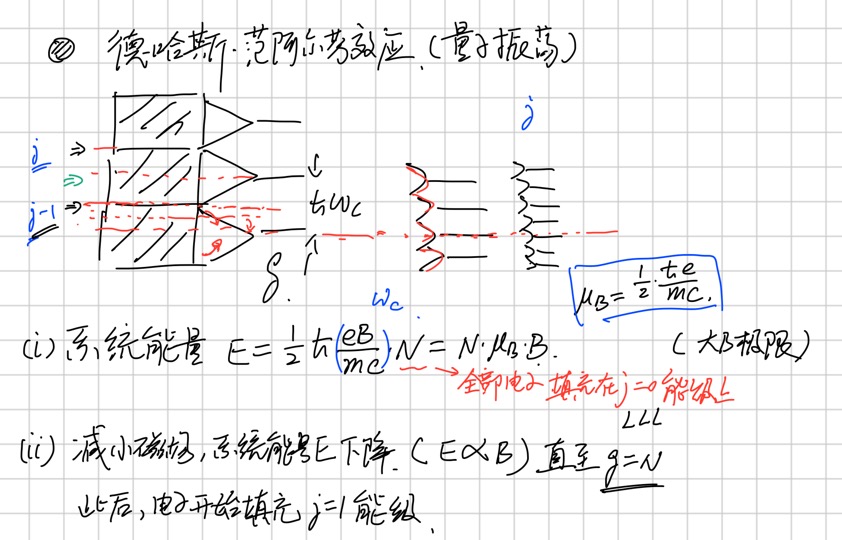 德·哈斯·范阿尔芬效应.(量子振荡)
j
j
j-1
ħωc
δ.
μB = 1/2 · ħe/mc.
ωc
(i) 系统能量 E = 1/2 ħ (eB/mc) · N = N·μB·B. (大B极限)
全部电子填充在j=0能级上
LLL
(ii) 减小磁场,系统能量E下降.(E∝B)直至 g=N
此后,电子开始填充j=1能级.